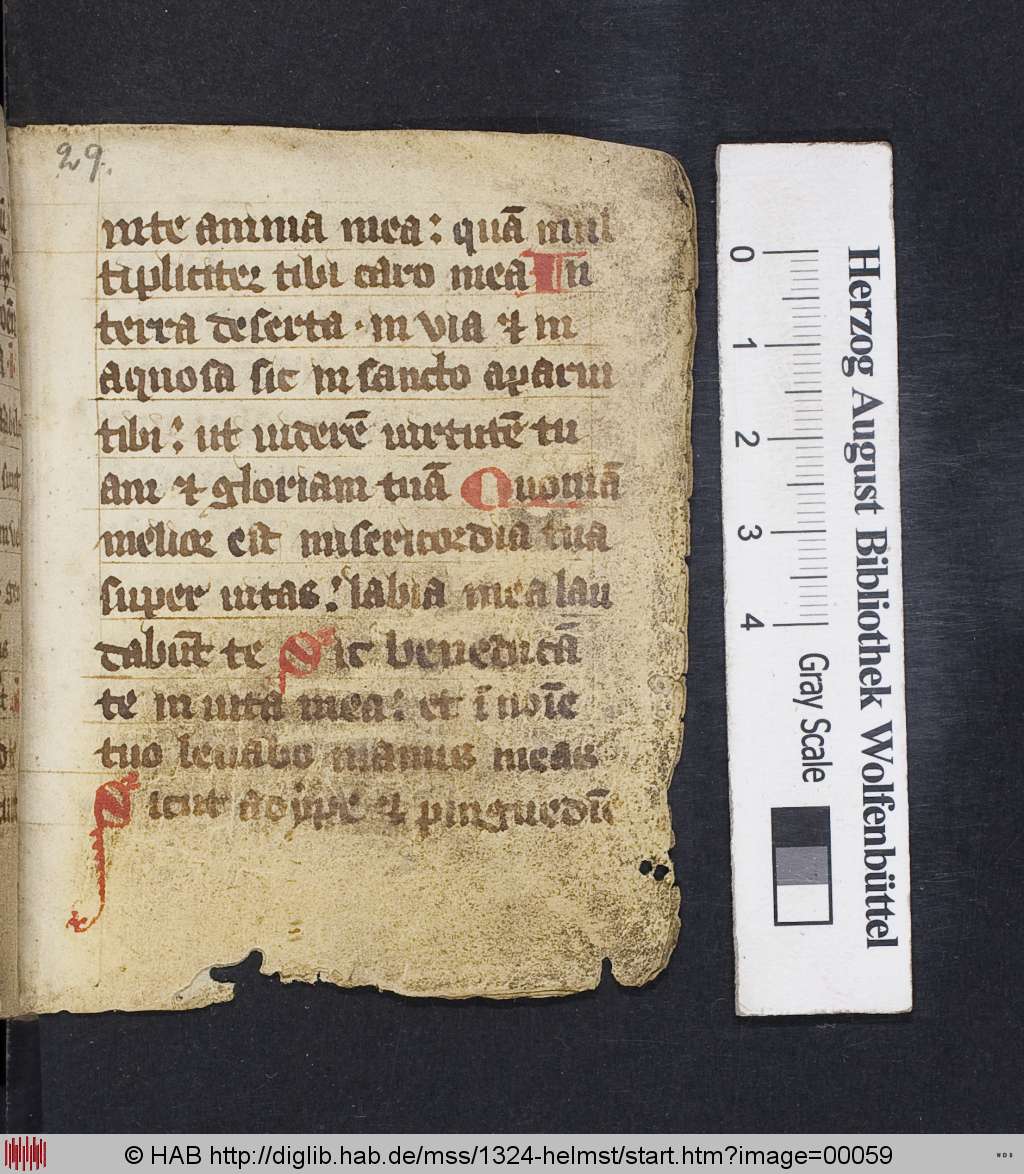 29.
inte anima mea: quā mul
tipliciter tibi caro mea In
terra deserta · in via & in
aquosa sic in sancto aparui
tibi: ut uiderē uirtutē tu
am & gloriam tuā Quoniā
melior est misericordia tua
super uitas: labia mea lau
dabūt te Sic benedicā
te in uita mea: et ī noīe
tuo leuabo manus meas
Sicut adipe & pinguedīe
Herzog August Bibliothek Wolfenbüttel
0 1 2 3 4
Gray Scale
© HAB http://diglib.hab.de/mss/1324-helmst/start.htm?image=00059